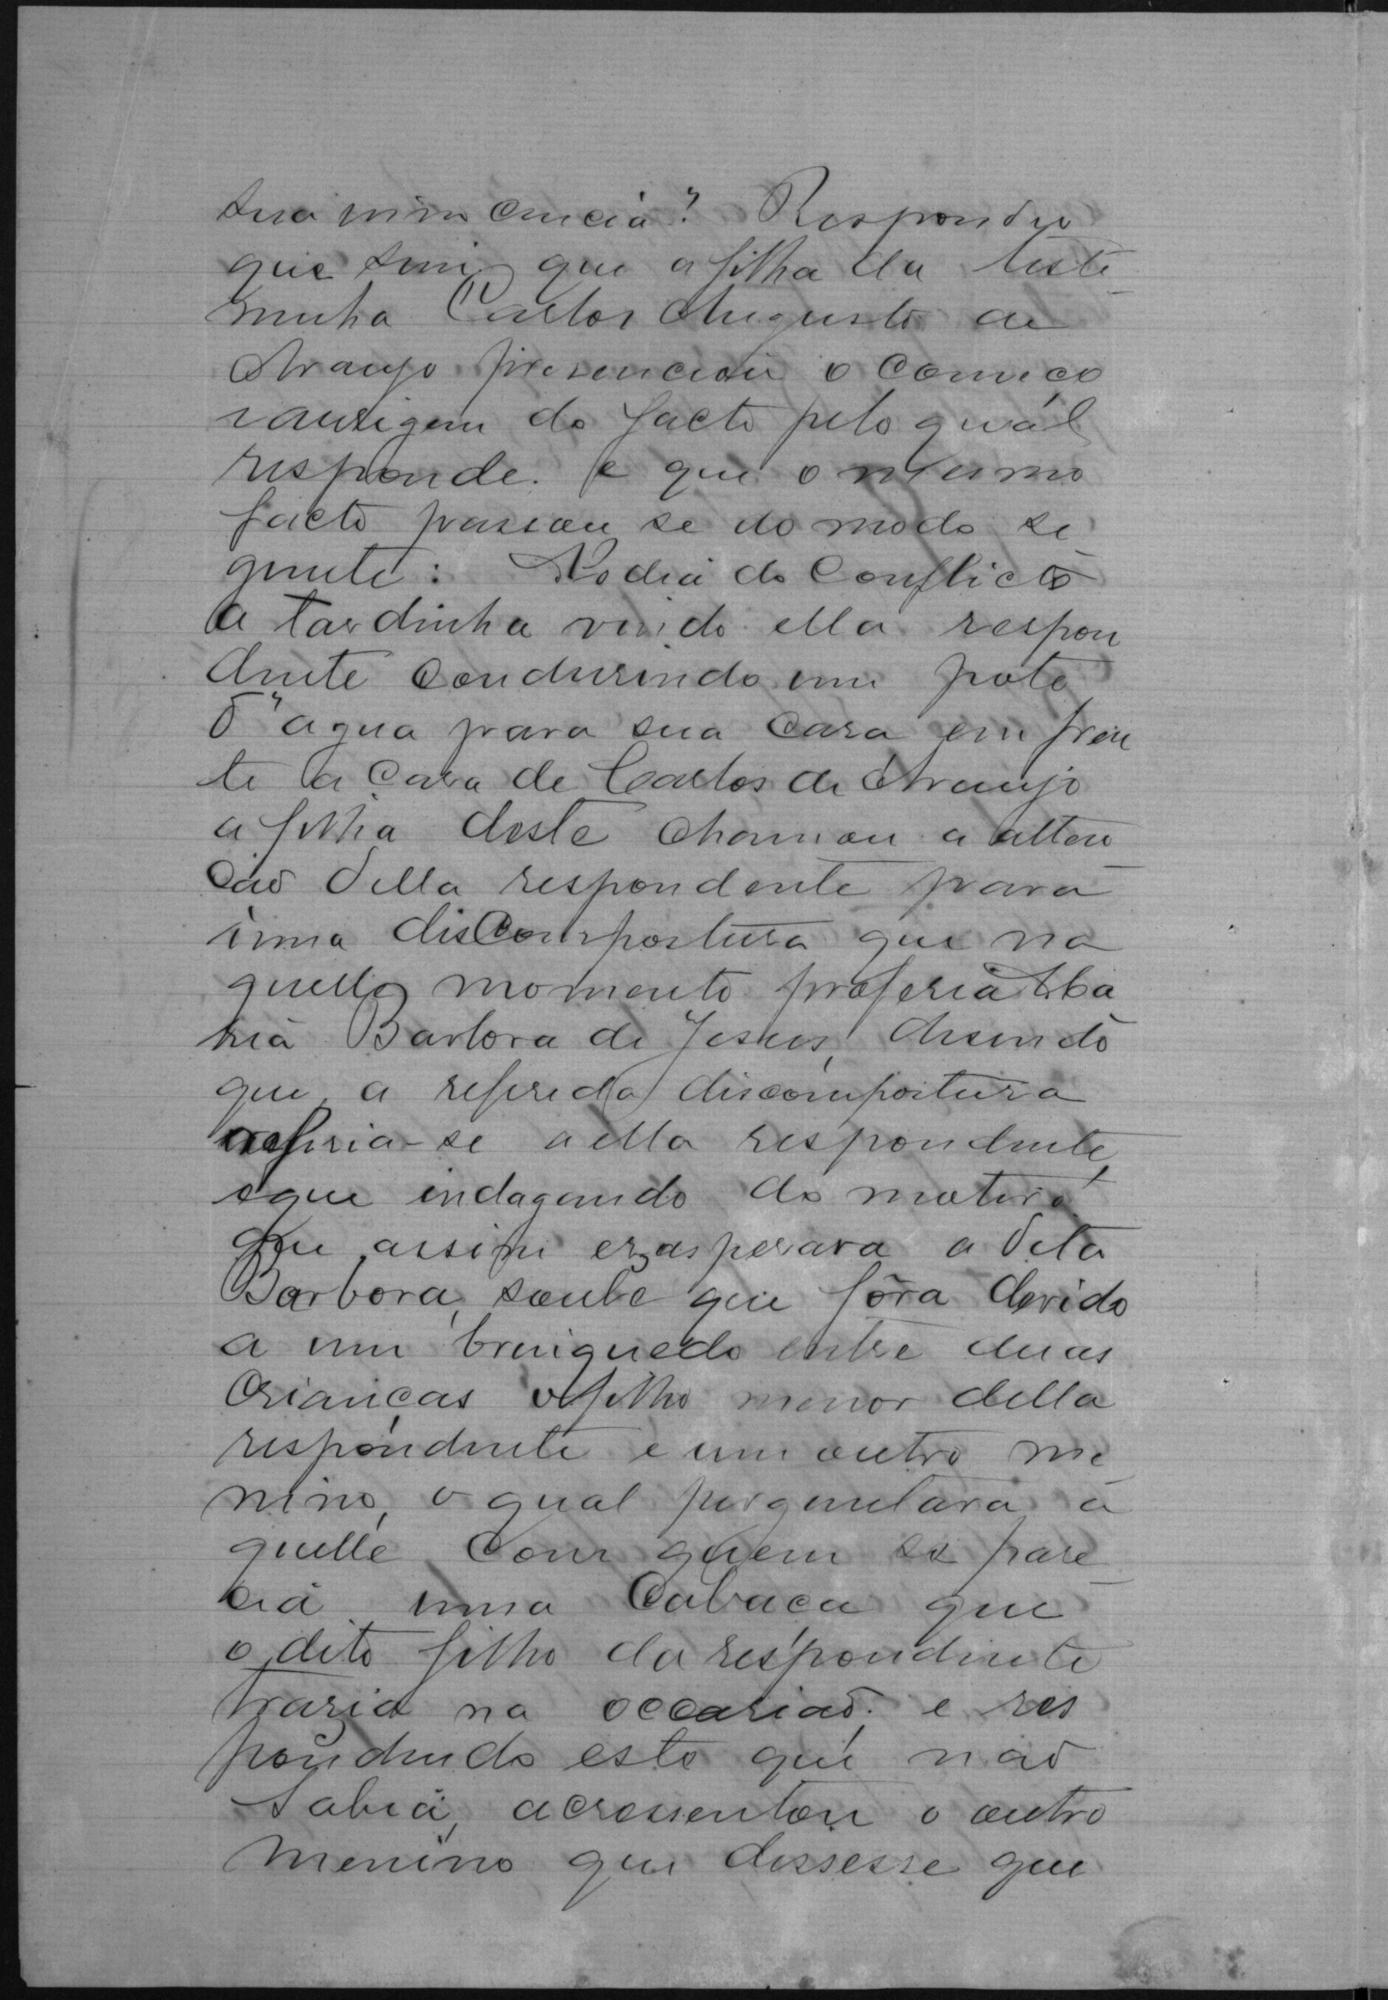 sua innocencia? Respondeu
que sim, que a filha da teste
munha Carlos Augusto de
Araujo presenciou o começo
e aurigem do facto pelo quál
responde. e que o mesmo
facto passou se do modo se
guinte: No dia do Conflicto
a tardinha vindo ella respon
dente condusindo um pote
d"agua para sua casa em fren
te a casa de Carlos de Araujo
a filha deste chamou a atten
ção della respondente para
uma discompostura que na
quelle momento proferia Ma
ria Barbora de Jesus, disendo
que a referida discompostura
referia-se a ella respondente,
e que indagando do motivo
que assim exasperava a dita
Barbora, soube que fôra devido
a um brinquedo entre duas
crianças o filho menor della
respondente e um outro me
nino, o qual perguntara a
quelle com quem se pare
cia uma Cabaça que
o dito filho da respondente
trazia na occasião; e res
pondendo este que não
sabia, acressentou o outro
menino que dissesse que